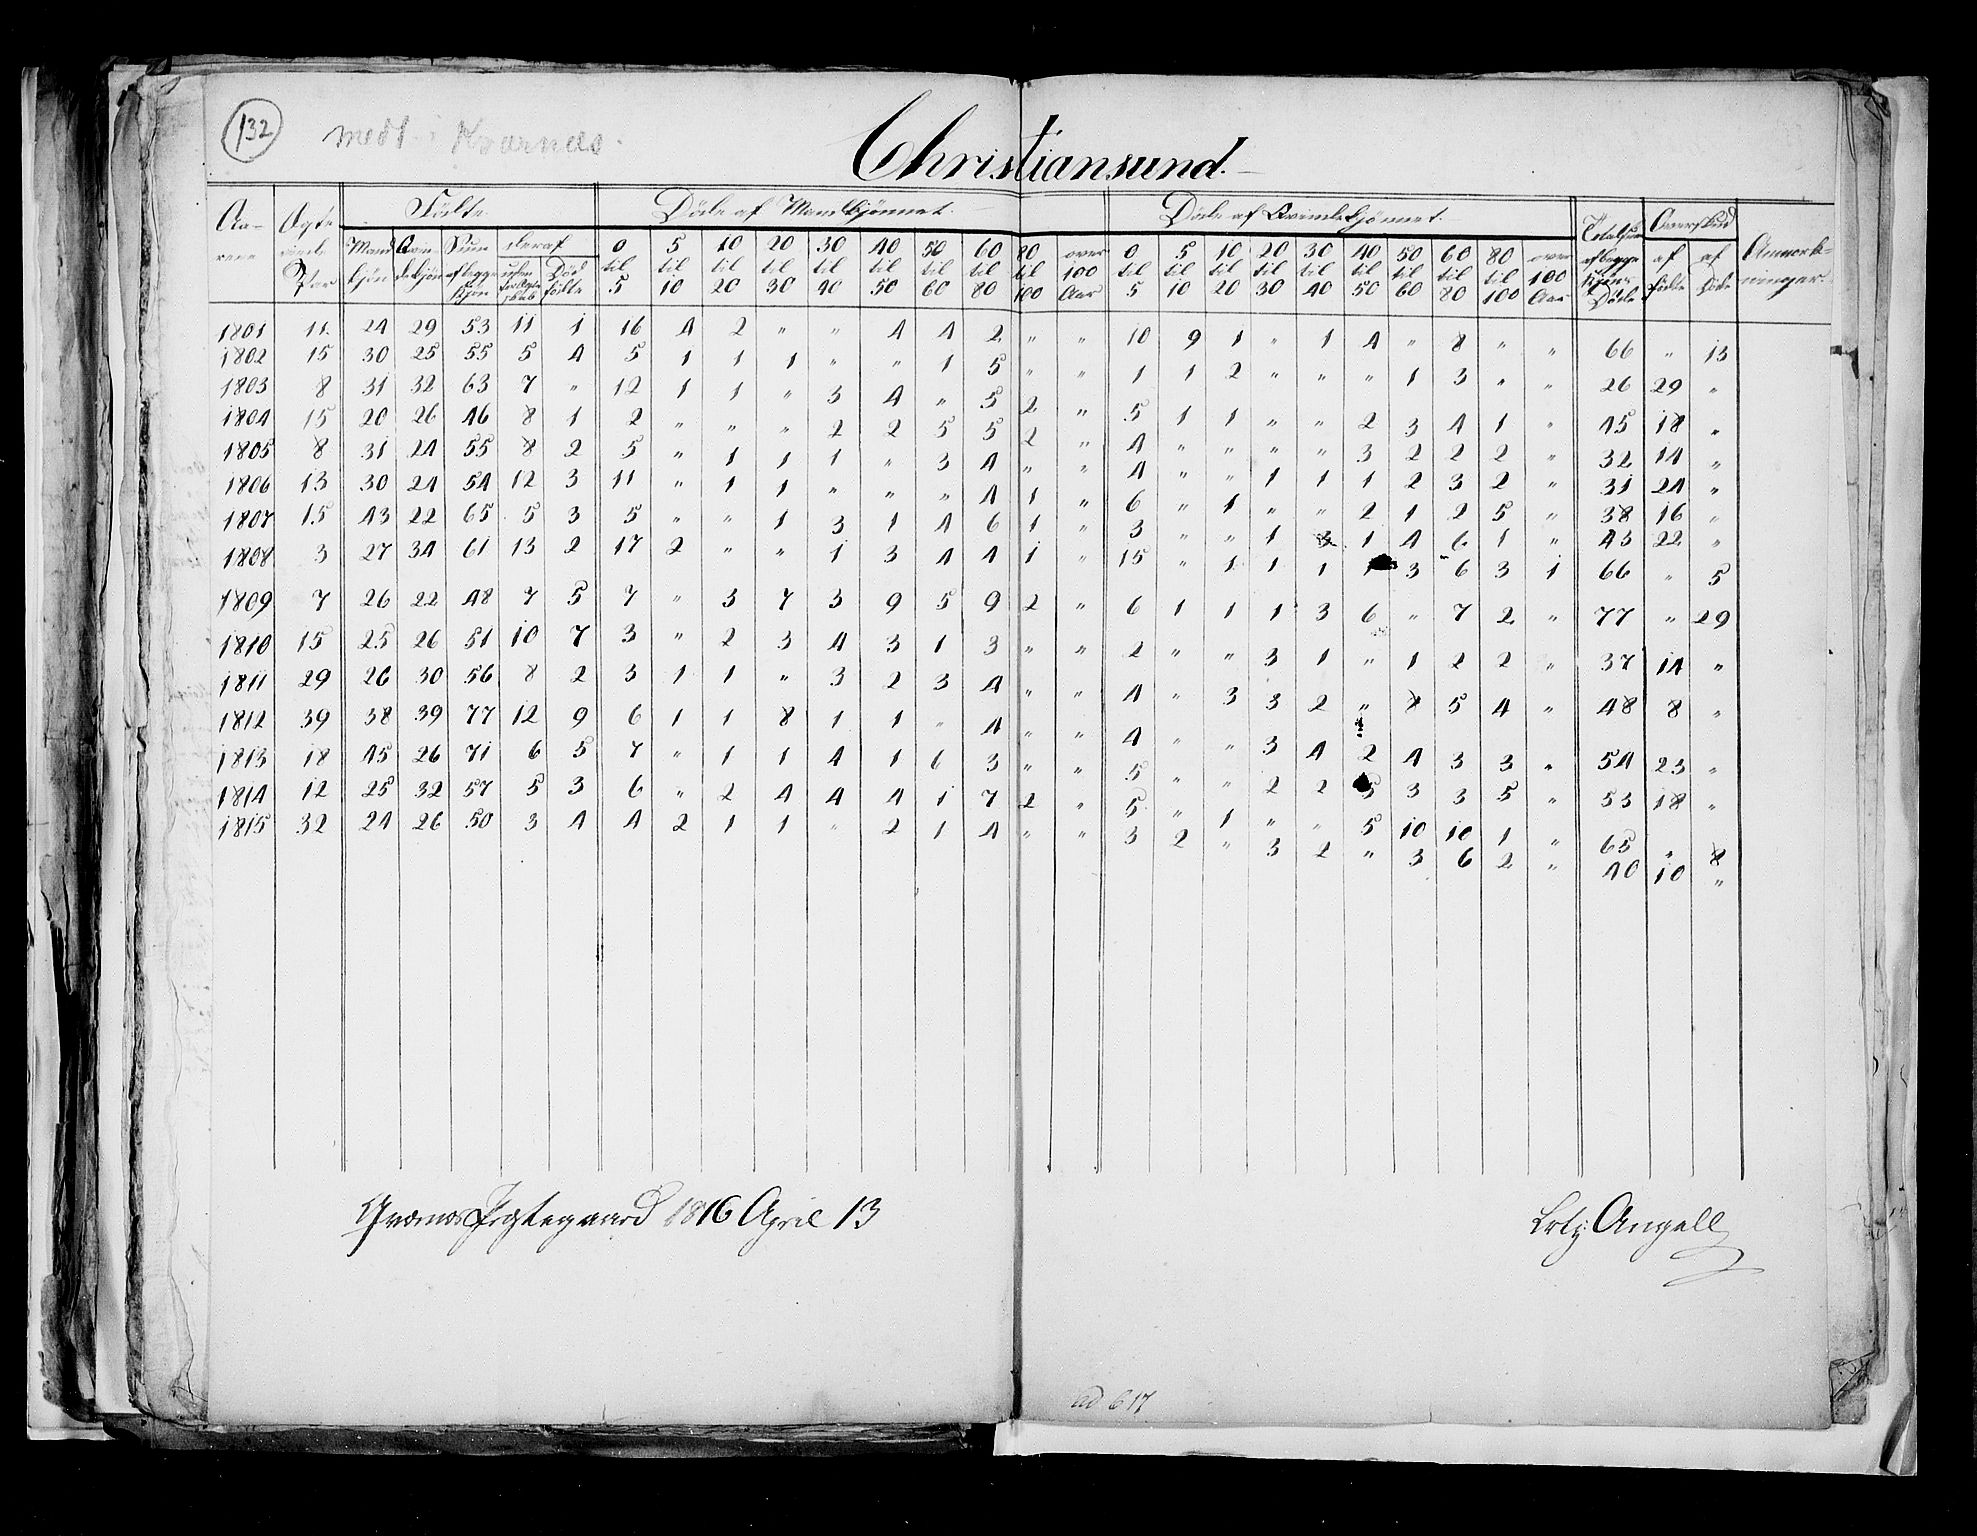 132
medt i Kvernes.
Christiansund.
Aa- Ægte Födte Döde af Mandkjönnet. Döde af Qvindekjönnet. Totalsum Overskud Anmerk-
rene viede Mand Qvin Sum deraf 0 5 10 20 30 40 50 60 80 over 0 5 10 20 30 40 50 60 80 over af begge af af ninger.
Par kjön dekjön af begge uden for Ægteskab Död til til til til til til til til til 100 til til til til til til til til til 100 Kjöns Födte Döde
Kjön födte 5 10 20 30 40 50 60 80 100 Aar 5 10 20 30 40 50 60 80 100 Aar Döde
1801 11 24 29 53 11 1 16 4 2 " " 4 4 2 " " 10 9 1 " 1 4 " 8 " " 66 " 13
1802 15 30 25 55 5 4 5 1 1 1 " " 1 5 " " 1 1 2 " " " 1 3 " " 26 29 "
1803 8 31 32 63 7 " 12 1 1 " 3 4 " 5 2 " 5 1 1 " " 2 3 4 1 " 45 18 "
1804 15 20 26 46 8 1 2 " " " 2 2 5 5 2 " 4 " " " " 3 2 2 2 " 32 14 "
1805 8 31 24 55 8 2 5 " 1 1 1 " 3 4 " " 4 " " 1 1 1 2 3 2 " 31 24 "
1806 13 30 24 54 12 3 11 " 1 1 " " " 4 1 " 6 " 1 " " 2 1 2 5 " 38 16 "
1807 15 43 22 65 5 3 5 " " 1 3 1 4 6 1 " 3 " " 1 3 1 4 6 1 " 43 22 "
1808 3 27 34 61 13 2 17 2 " " 1 3 4 4 1 " 15 " 1 1 1 1 3 6 3 1 66 " 5
1809 7 26 22 48 7 5 7 " 3 7 3 9 5 9 2 " 6 1 1 1 3 6 " 7 2 " 77 " 29
1810 15 25 26 51 10 7 3 " 2 3 4 3 1 3 " " 2 " " 3 1 " 1 2 2 " 37 14 "
1811 29 26 30 56 8 2 3 1 1 " 3 2 3 4 " " 4 " 3 3 2 " 8 5 4 " 48 8 "
1812 39 38 39 77 12 9 6 1 1 8 1 1 " 4 " " 4 " " 3 4 2 4 3 3 " 54 23 "
1813 18 45 26 71 6 5 7 " 1 1 4 1 6 3 " " 5 " " 2 2 5 3 3 5 " 53 18 "
1814 12 25 32 57 5 3 6 " 2 4 4 4 1 7 2 " 5 " 1 " " 5 10 10 1 " 65 " 8
1815 32 24 26 50 3 4 4 2 1 1 " 2 1 4 " " 3 2 " 3 2 " 3 6 2 " 40 10 "
Qvernes Prestegaard 1816 April 13
Angell
ad 617